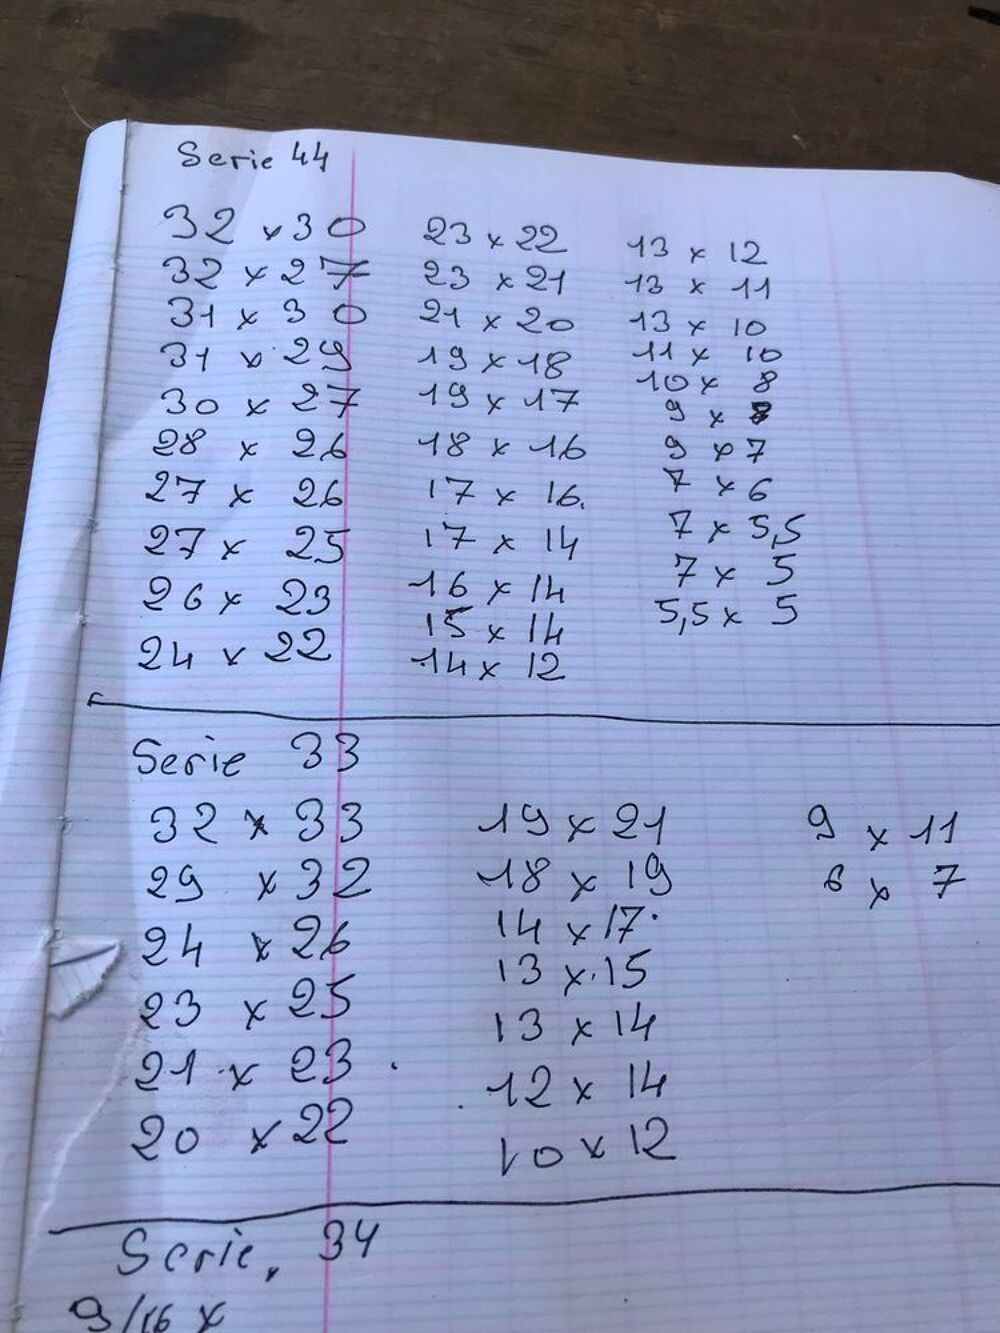 Serie 44
32 x 30
32 x 27
31 x 30
31 x 29
30 x 27
28 x 26
27 x 26
27 x 25
26 x 23
24 x 22
23 x 22
23 x 21
21 x 20
19 x 18
19 x 17
18 x 16
17 x 16
17 x 14
16 x 14
15 x 14
14 x 12
13 x 12
13 x 11
13 x 10
11 x 10
10 x 8
9 x 8
9 x 7
7 x 6
7 x 5,5
7 x 5
5,5 x 5
Serie 33
32 x 33
29 x 32
24 x 26
23 x 25
21 x 23
20 x 22
19 x 21
18 x 19
14 x 17
13 x 15
13 x 14
12 x 14
10 x 12
9 x 11
6 x 7
Serie. 34
9/16 x